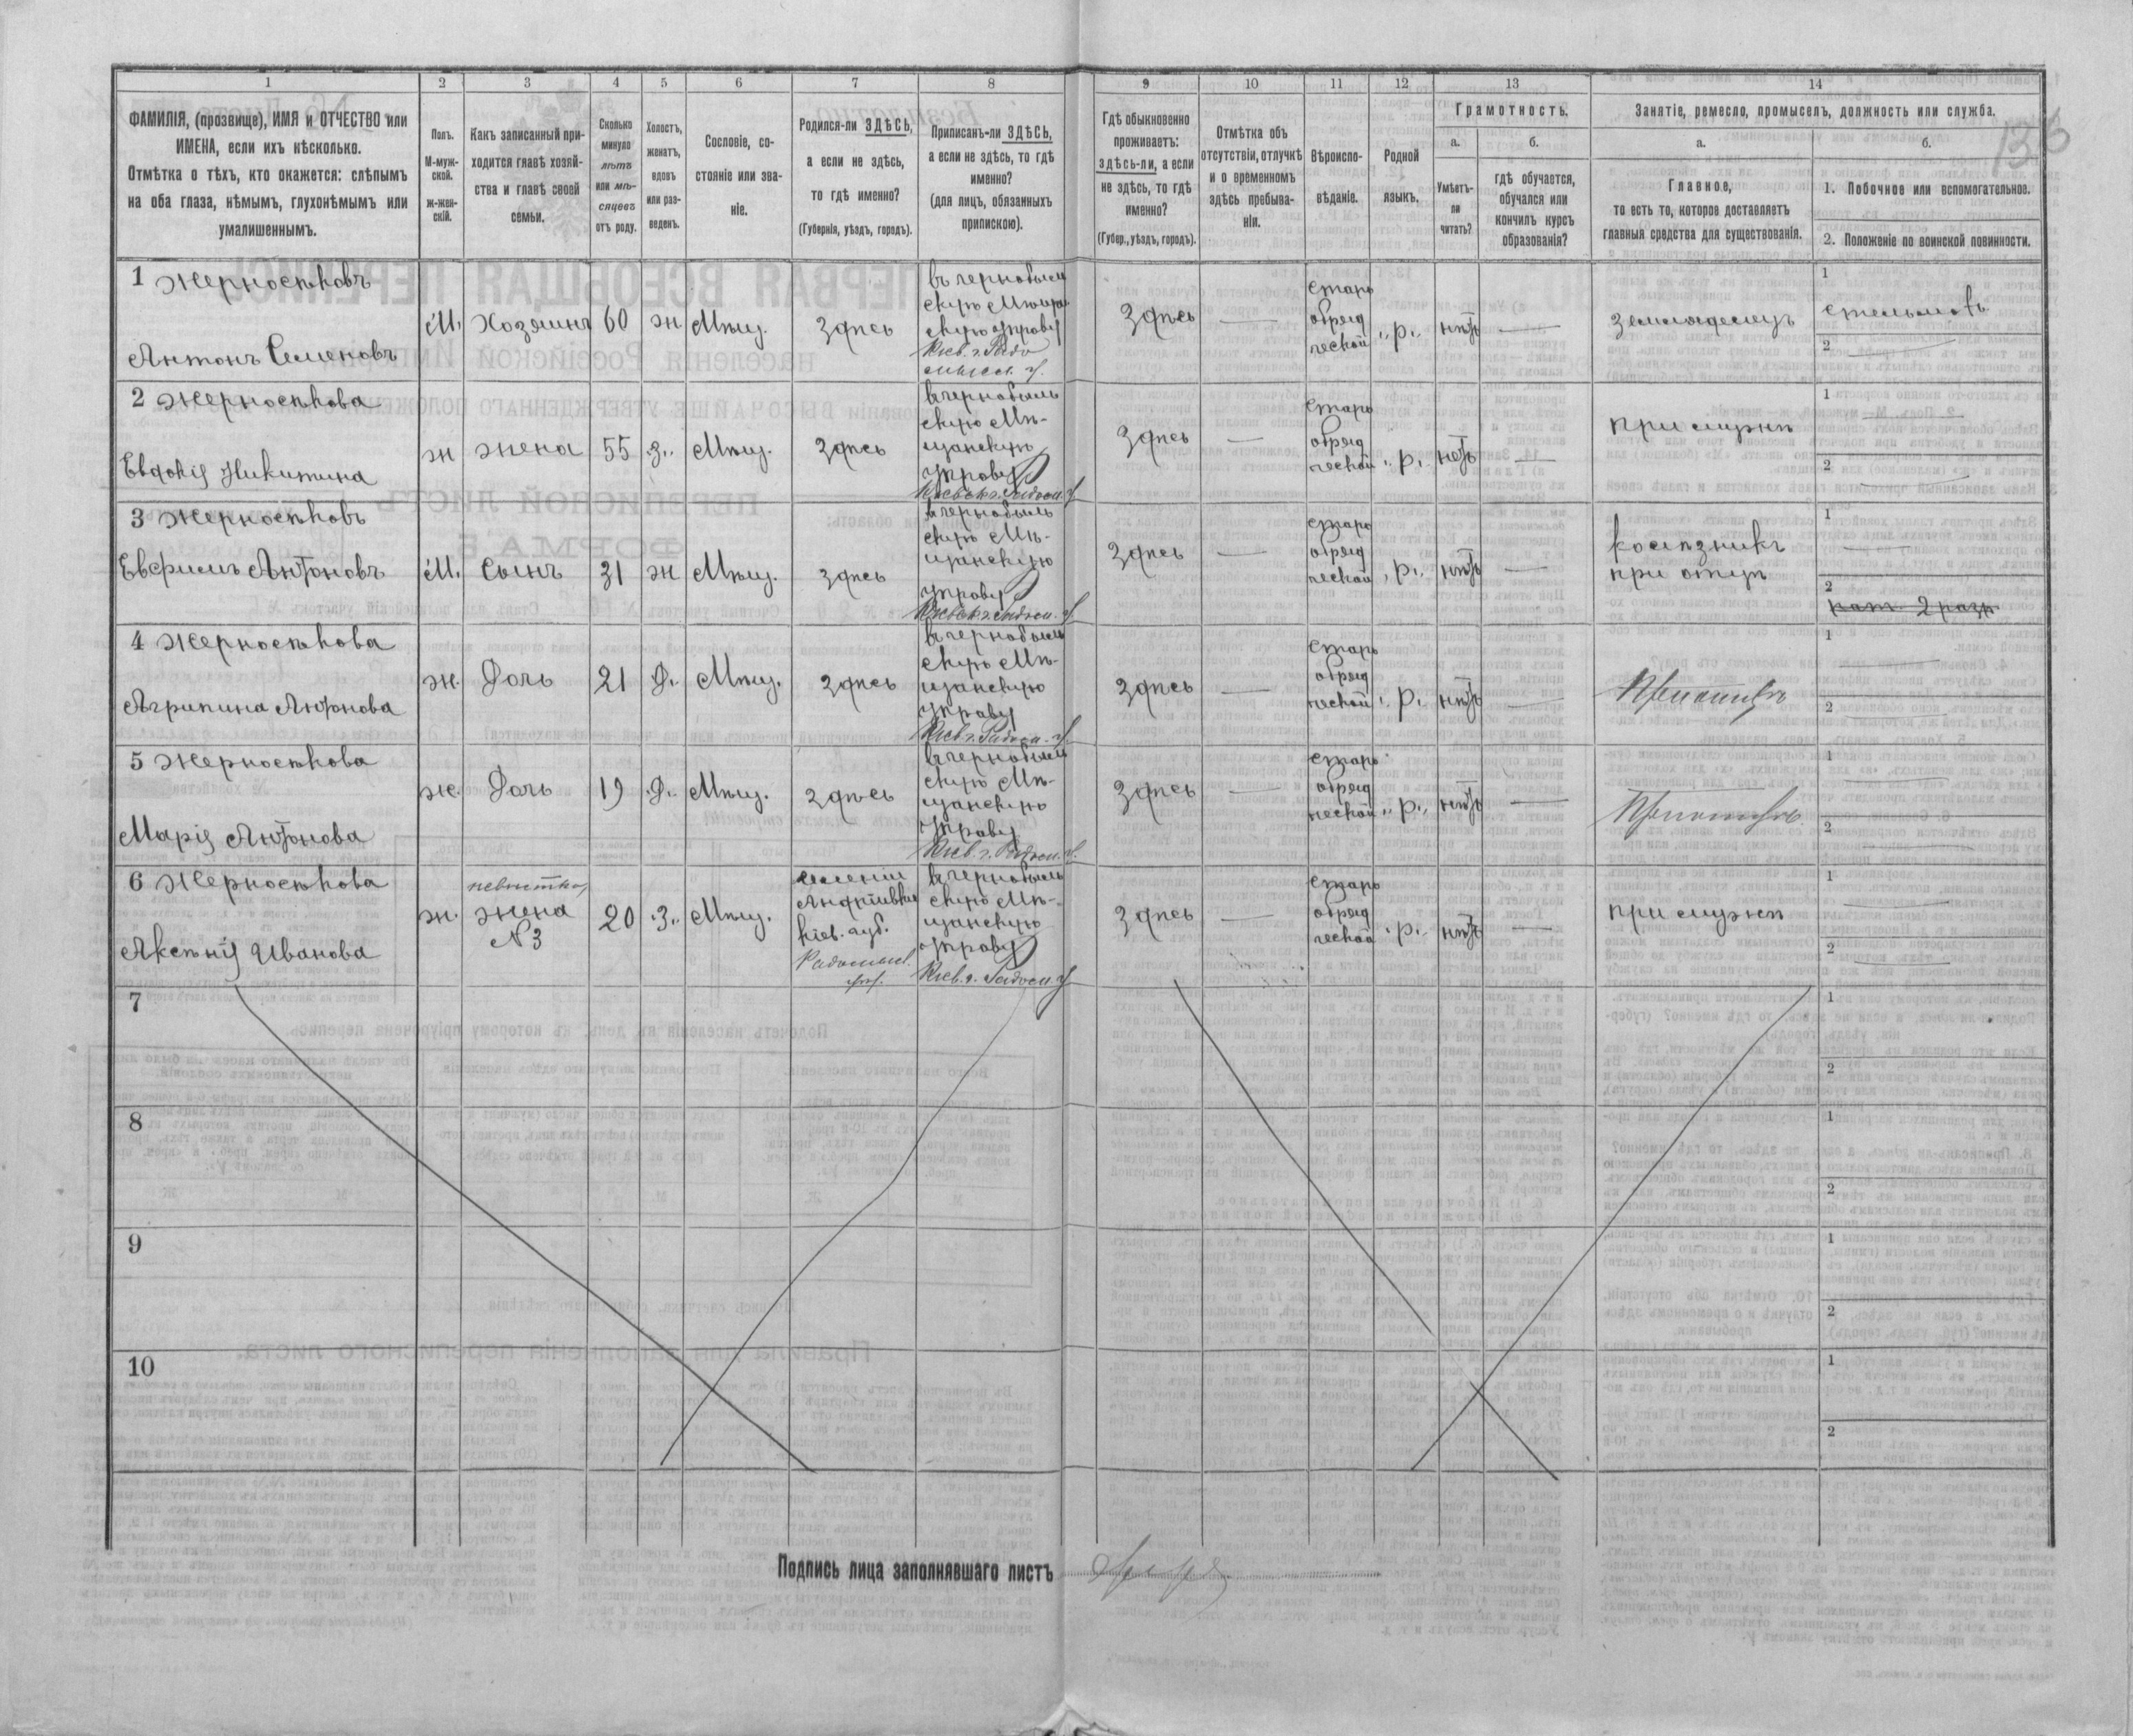 1 2 3 4 5 6 7 8 9 10 11 12 13 14
ФАМИЛІЯ, (прозвище), ИМЯ и ОТЧЕСТВО или
ИМЕНА, если ихъ нѣсколько.
Отмѣтка о тѣхъ, кто окажется: слѣпымъ
на оба глаза, нѣмымъ, глухонѣмымъ или
умалишеннымъ.
Полъ.
М-муж-
ской.
ж-жен-
скій.
Какъ записанный при-
ходится главѣ хозяй-
ства и главѣ своей
семьи.
Сколько
минуло
лѣтъ
или мѣ-
сяцевъ
отъ роду.
Холостъ,
женатъ,
вдовъ
или раз-
веденъ.
Сословіе, со-
стояніе или зва-
ніе.
Родился-ли ЗДѢСЬ,
а если не здѣсь,
то гдѣ именно?
(Губернія, уѣздъ, городъ).
Приписанъ-ли ЗДѢСЬ,
а если не здѣсь, то гдѣ
именно?
(для лицъ, обязанныхъ
припискою).
Гдѣ обыкновенно
проживаетъ:
здѣсь-ли, а если
не здѣсь, то гдѣ
именно?
(Губер., уѣздъ, городъ).
Отмѣтка объ
отсутствіи, отлучкѣ
и о временномъ
здѣсь пребыва-
ніи.
Вѣроиспо-
вѣданіе.
Родной
языкъ.
Грамотность.
а.
Умѣетъ-
ли
читать?
б.
гдѣ обучается,
обучался или
кончилъ курсъ
образованія?
Занятіе, ремесло, промыселъ, должность или служба.
а.
Главное,
то есть то, которое доставляетъ
главныя средства для существованія.
б.
1. Побочное или вспомогательное.
2. Положеніе по воинской повинности.
1 Жерносѣковъ
Антонъ Семеновъ
М. Хозяинъ 60 ж Мѣщ. Здѣсь
въ чернобыль
скую Мѣщан
скую управу
Кіев. г. Радо
мысл. у.
Здѣсь —
Старо
обряд
ческой
р. нѣтъ —
земледелецъ
1
2
2 Жерносѣкова
Евдокія Никитина
ж жена 55 з. Мѣщ. Здѣсь
въ чернобыль
скую Мѣ-
щанскую
управу
Здѣсь —
Старо
обряд
ческой
р. нетъ —
при мужѣ
1
2
3 Жерносѣковъ
Евфимъ Антоновъ
М. Сынъ 31 ж Мѣщ. Здѣсь
въ чернобыль
скую Мѣ-
щанскую
управу
Здѣсь —
Старо
обряд
ческой
р. нѣтъ —
при отцѣ
1
2
4 Жерносѣкова
Агрипина Антонова
ж. Дочь 21 д. Мѣщ. Здѣсь
въ чернобыль
скую Мѣ-
щанскую
управу
Кіев. г. Радом. у.
Здѣсь —
Старо
обряд
ческой
р. нѣтъ —
При отцѣ
1
2
5 Жерносѣкова
Марія Антонова
ж. Дочь 19 д. Мѣщ. Здѣсь
въ чернобыль
скую Мѣ-
щанскую
управу
Кіев. г. Радом. у.
Здѣсь —
Старо
обряд
ческой
р. нѣтъ —
При отцѣ
1
2
6 Жерносѣкова
Аксенія Иванова
ж.
невѣстка,
жена
№ 3
20 з. Мѣщ.
селеніи
кіев. губ.
Радомысл.
у.
въ чернобыль
скую Мѣ-
щанскую
управу
Кіев. г. Радом. у.
Здѣсь —
Старо
обряд
ческой
р. нѣтъ —
при мужѣ
1
2
7
1
2
8
1
2
9
1
2
10
1
2
Подпись лица заполнявшаго листъ